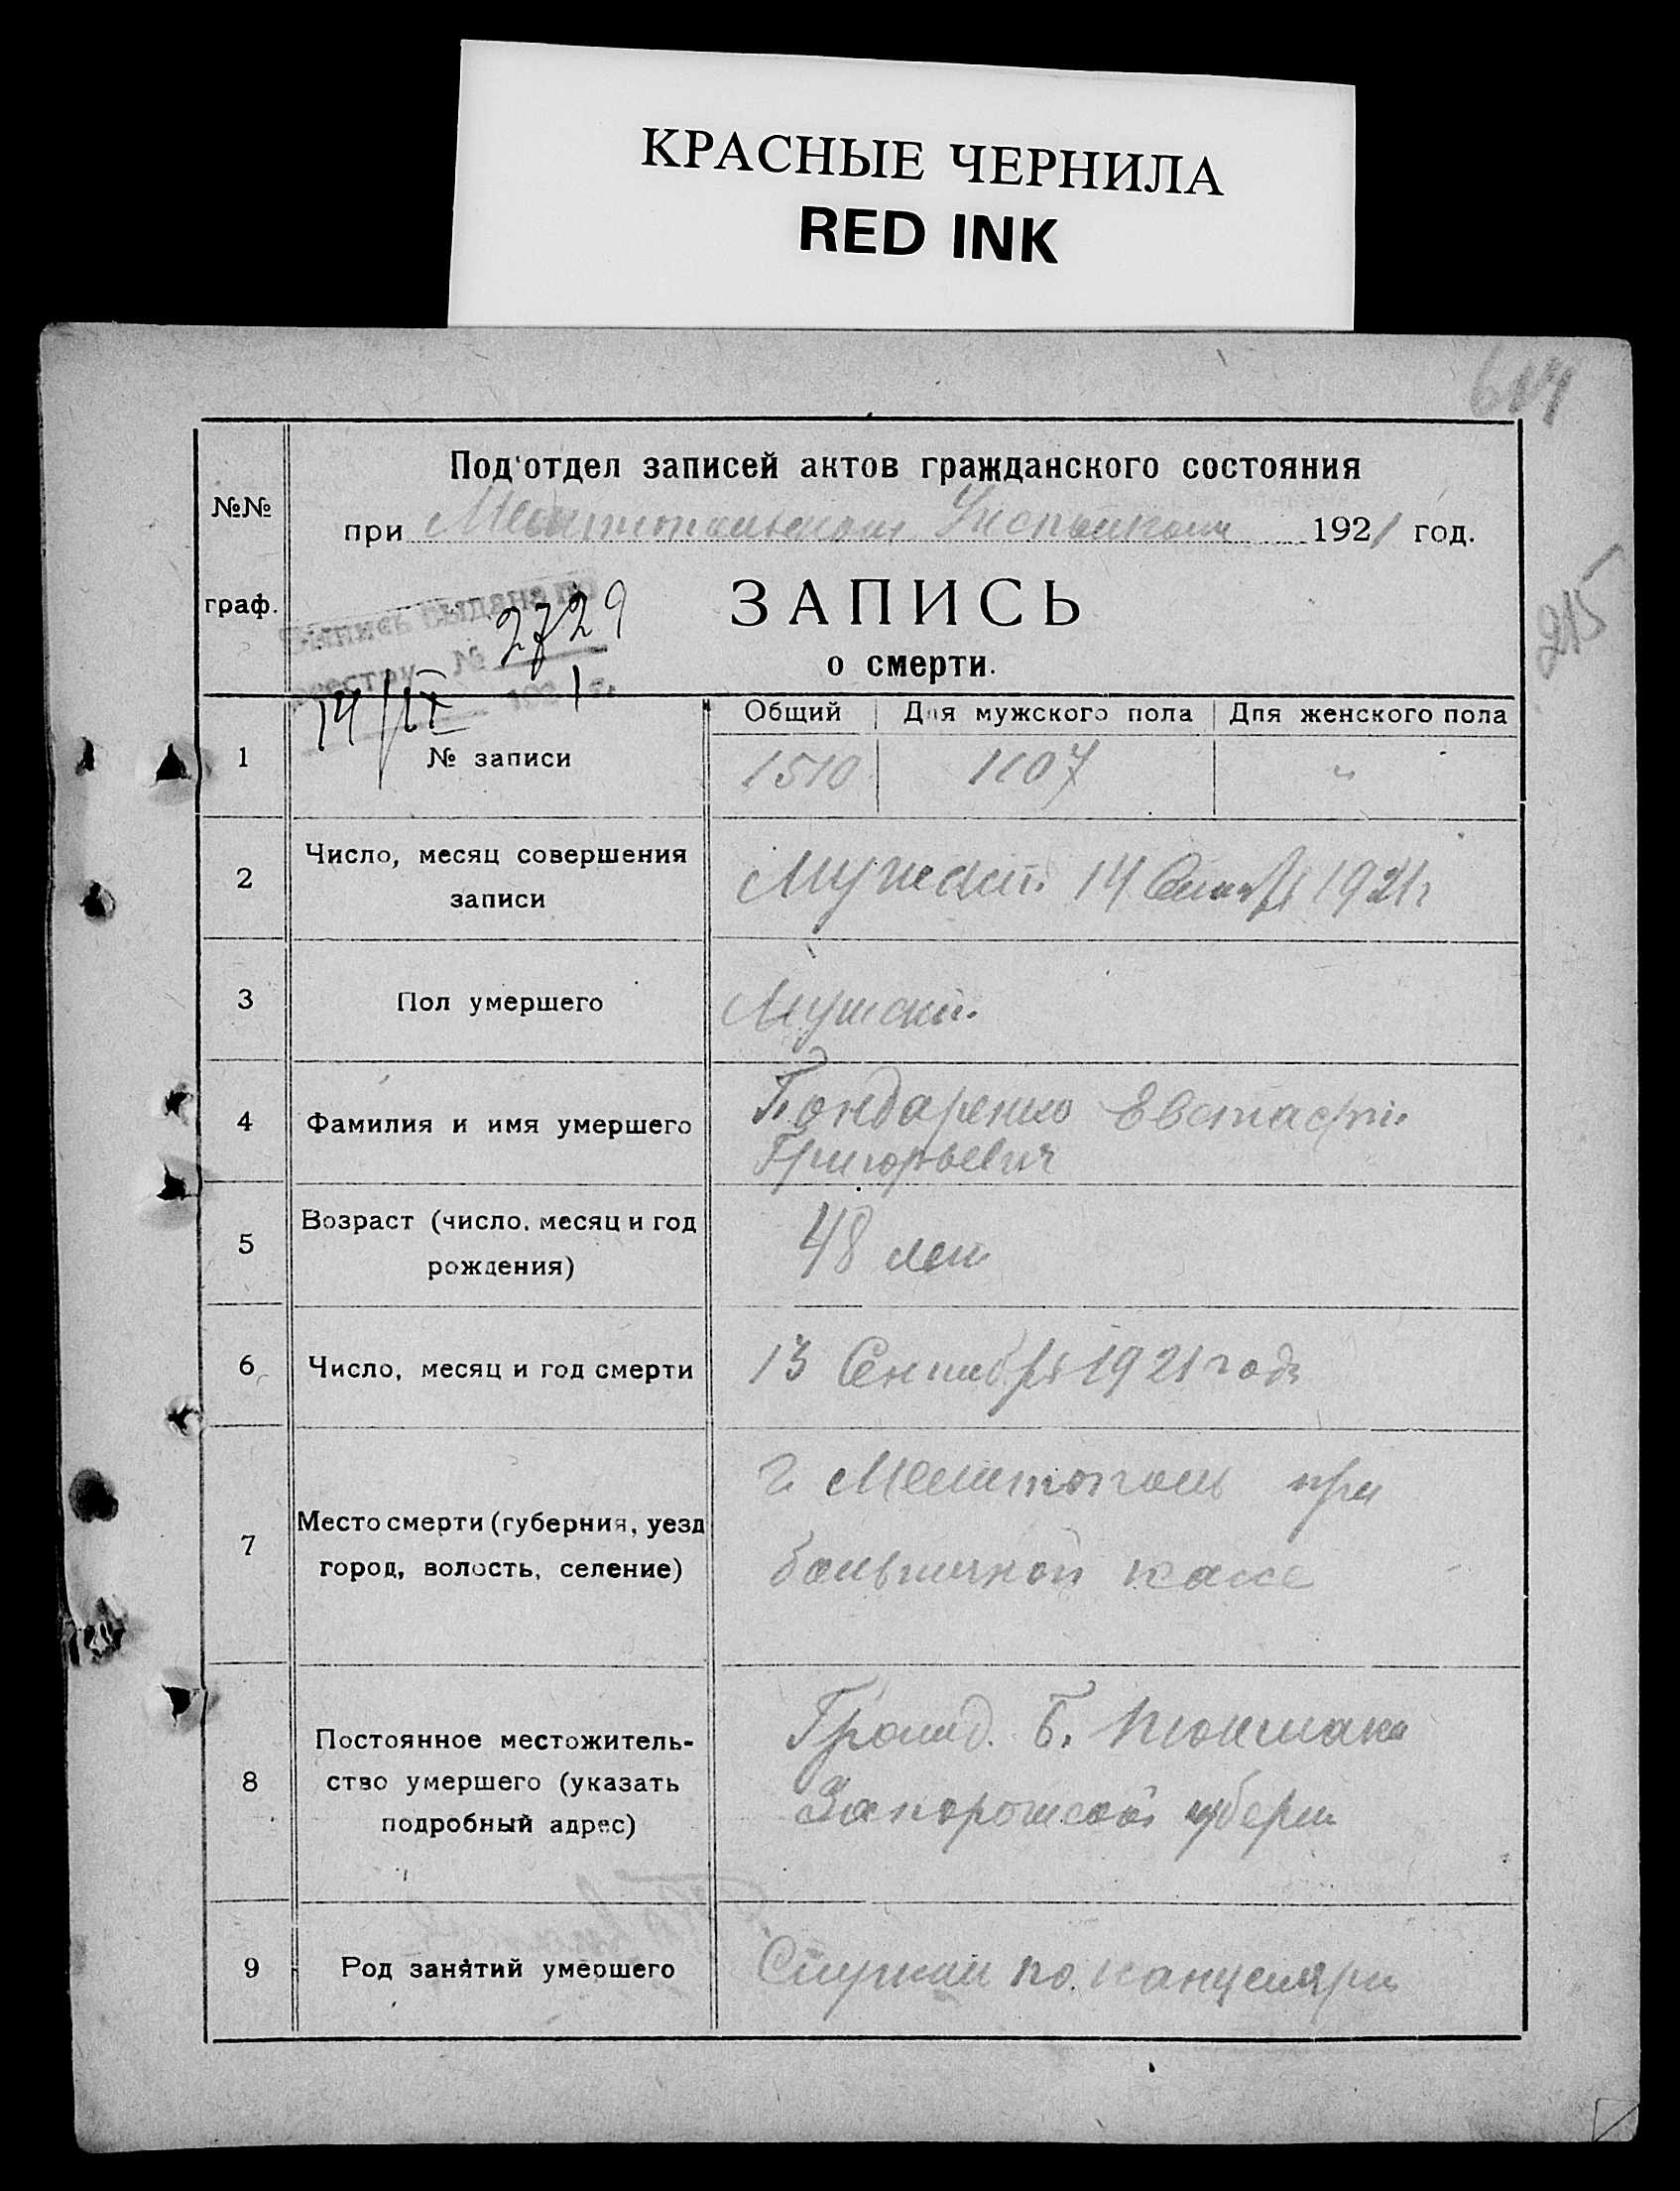 КРАСНЫЕ ЧЕРНИЛА
RED INK
614
Под'отдел записей актов гражданского состояния
№№
при Мелитопольском Исполкоме 1921 год.
215
граф.
ЗАПИСЬ
о смерти.
Выпись выдана по
реестру № 2729
14/IX 1921 г.
Общий Для мужского пола Для женского пола
1 № записи 1510 1107 "
2 Число, месяц совершения
записи
Мужской 14 1921 г
3 Пол умершего Мужской
4 Фамилия и имя умершего Бондаренко Евстафий
Григорьевич
5 Возраст (число, месяц и год
рождения)
48 лет
6 Число, месяц и год смерти 13 Сентября 1921 года
7 Место смерти (губерния, уезд
город, волость, селение)
г. Мелитополь при
больничной кассе
8 Постоянное местожитель-
ство умершего (указать
подробный адрес)
Гражд. Б. Токмака
Запорожской губерн
9 Род занятий умершего по канцеляри